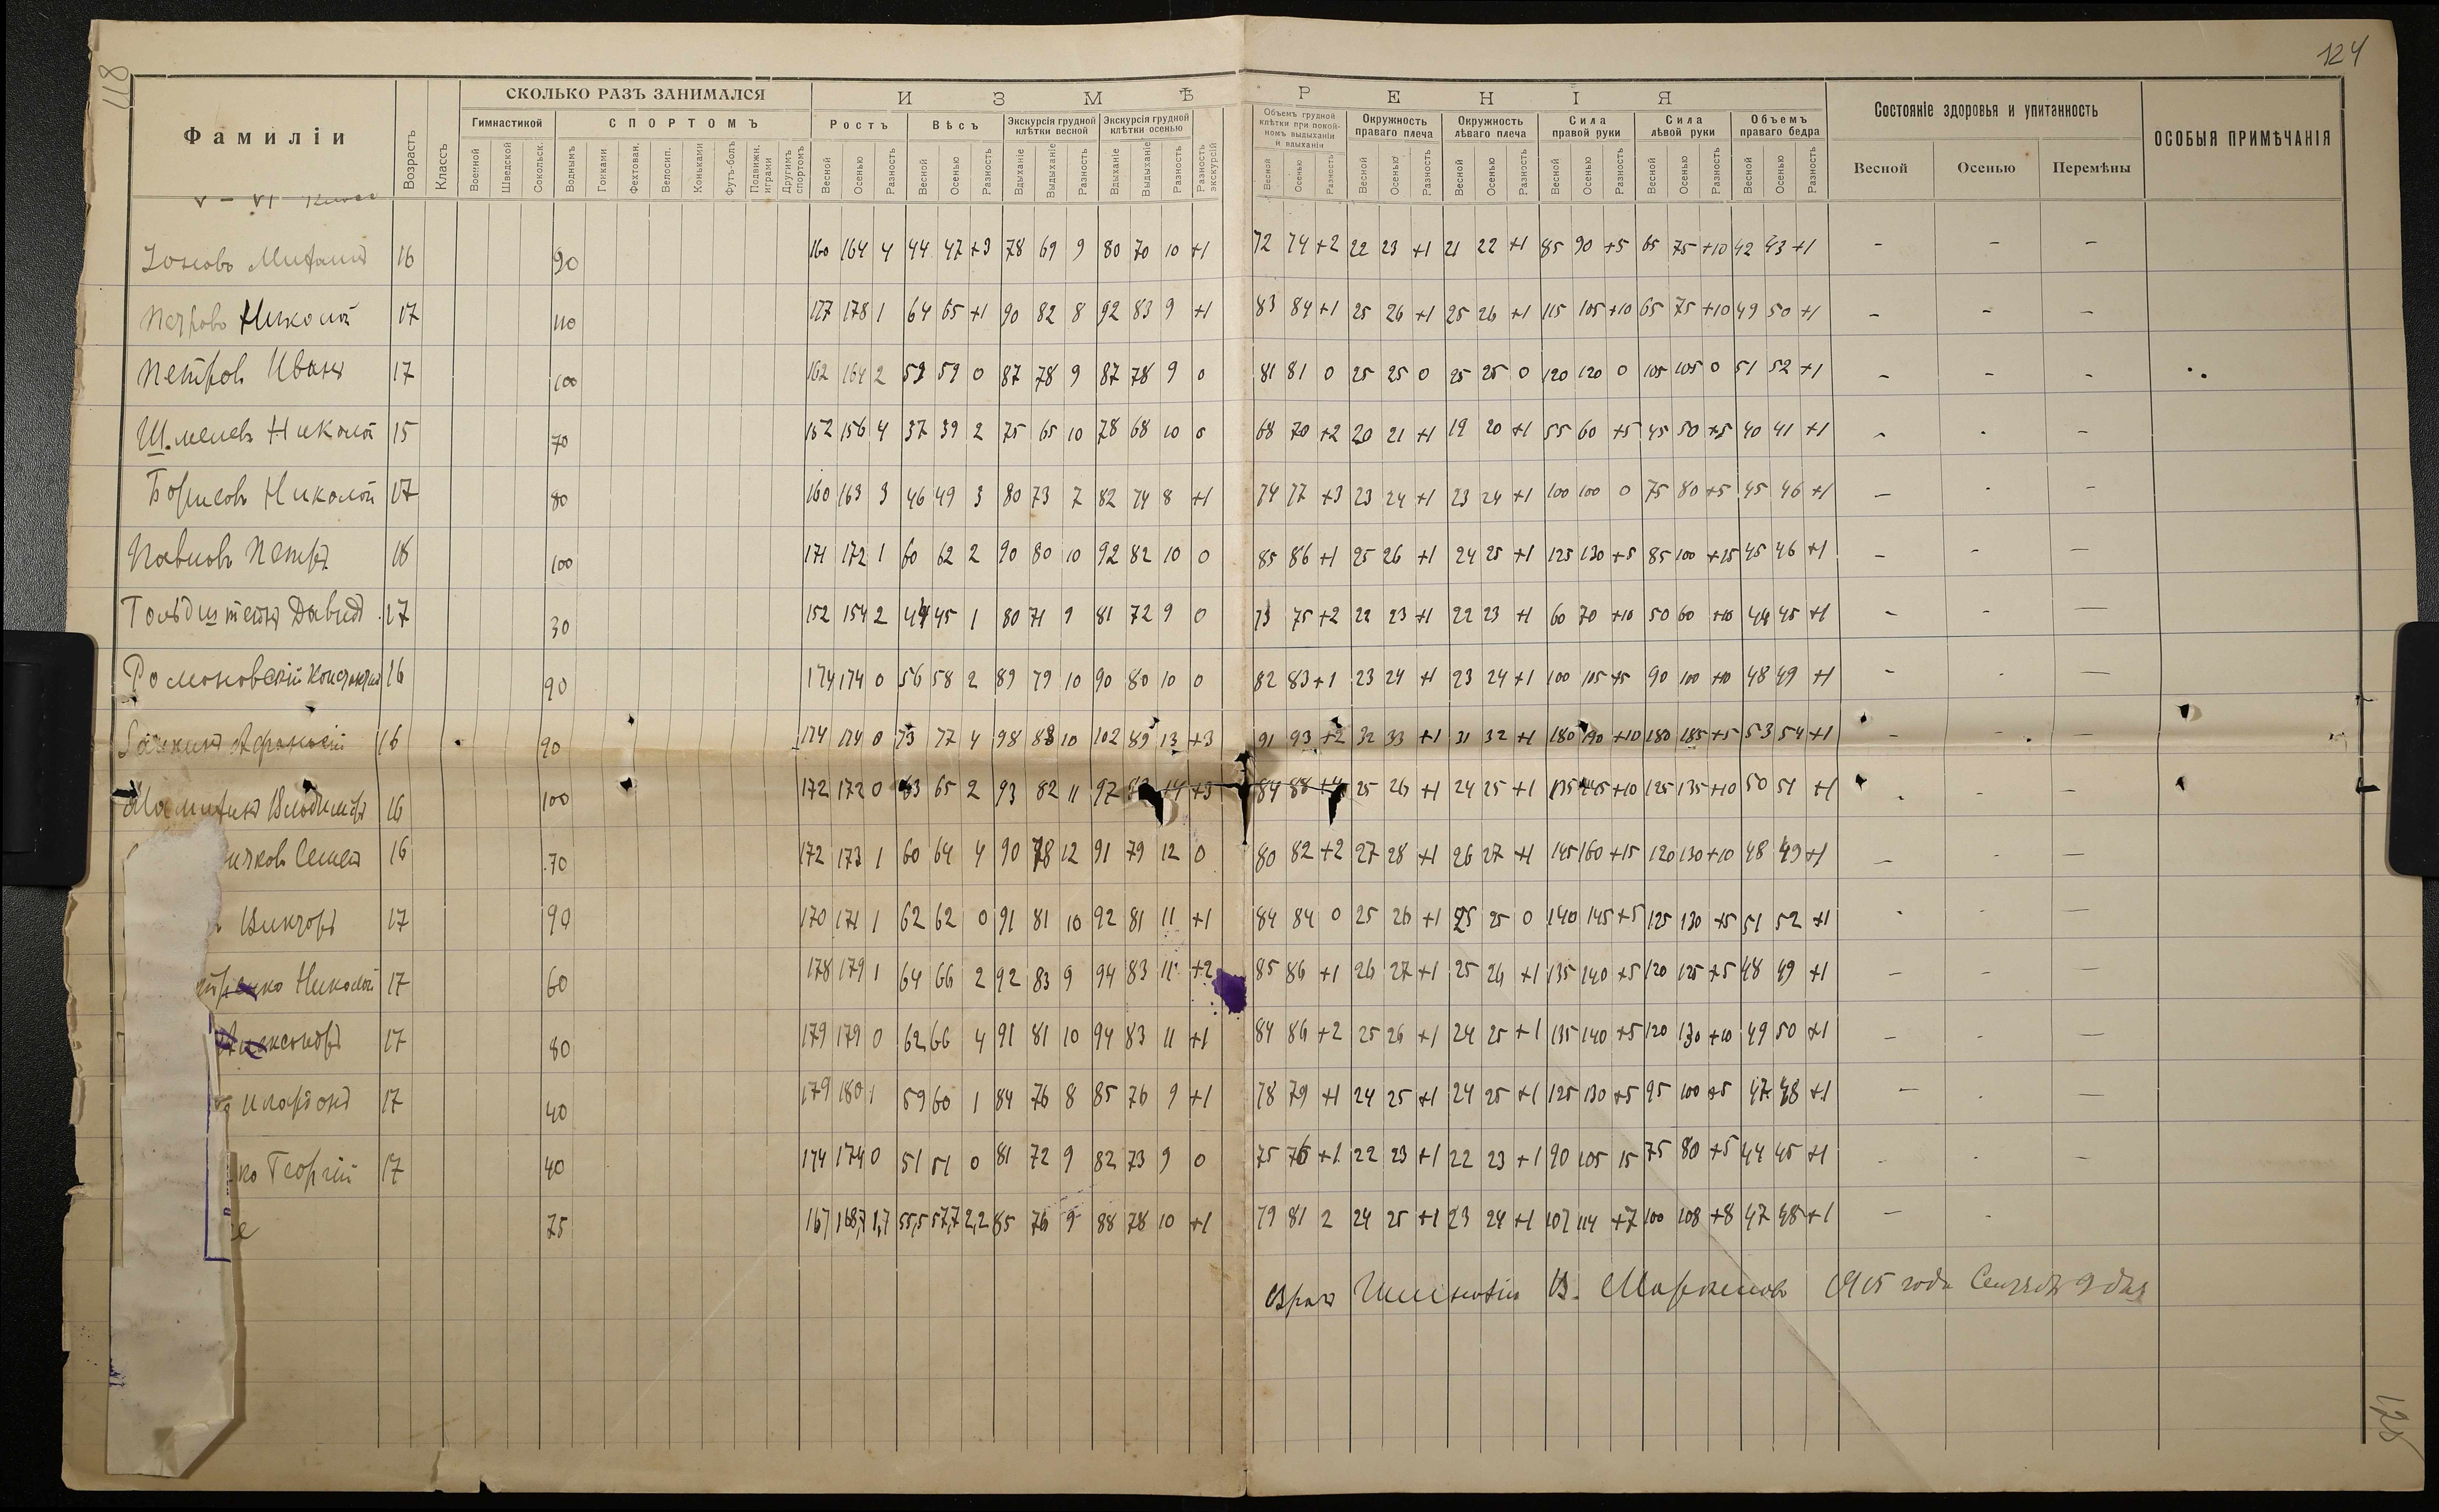 118
124
Фамиліи
Возрастъ
Классъ
СКОЛЬКО РАЗЪ ЗАНИМАЛСЯ
И З М Ѣ Р Е Н І Я
Состояніе здоровья и упитанность
ОСОБЫЯ ПРИМѢЧАНІЯ
Гимнастикой
СПОРТОМЪ
Ростъ
Вѣсъ
Экскурсія грудной клѣтки весной
Экскурсія грудной клѣтки осенью
Объемъ грудной клѣтки при покойномъ выдыханіи и вдыханіи
Окружность праваго плеча
Окружность лѣваго плеча
Сила правой руки
Сила лѣвой руки
Объемъ праваго бедра
Военной Шведской Сокольск. Воднымъ Гонками Фехтован. Велосип. Коньками Футъ-болъ Подвижн. играми Другимъ спортомъ Весной Осенью Разность Весной Осенью Разность Вдыханіе Выдыханіе Разность Вдыханіе Выдыханіе Разность Разность экскурсій Весной Осенью Разность Весной Осенью Разность Весной Осенью Разность Весной Осенью Разность Весной Осенью Разность Весной Осенью Разность Весной Осенью Перемѣны
V – VI
16 90 160 164 4 44 47 +3 78 69 9 80 70 10 +1 72 74 +2 22 23 +1 21 22 +1 85 90 +5 65 75 +10 42 43 +1 – – –
Петровъ Николай 17 110 177 178 1 64 65 +1 90 82 8 92 83 9 +1 83 84 +1 25 26 +1 25 26 +1 115 105 +10 65 75 +10 49 50 +1 – – –
Петровъ Иванъ 17 100 162 164 2 59 59 0 87 78 9 87 78 9 0 81 81 0 25 25 0 25 25 0 120 120 0 105 105 0 51 52 +1 – – –
Шмелевъ Николай 15 70 152 156 4 37 39 2 75 65 10 78 68 10 0 68 70 +2 20 21 +1 19 20 +1 55 60 +5 45 50 +5 40 41 +1 – – –
Борисовъ Николай 17 80 160 163 3 46 49 3 80 73 7 82 74 8 +1 74 77 +3 23 24 +1 23 24 +1 100 100 0 75 80 +5 45 46 +1 – – –
Павловъ Петръ 18 100 171 172 1 60 62 2 90 80 10 92 82 10 0 85 86 +1 25 26 +1 24 25 +1 125 130 +5 85 100 +15 45 46 +1 – – –
Гольдштейнъ Давидъ 17 30 152 154 2 44 45 1 80 71 9 81 72 9 0 73 75 +2 22 23 +1 22 23 +1 60 70 +10 50 60 +10 44 45 +1 – – –
Романовскій 16 90 174 174 0 56 58 2 89 79 10 90 80 10 0 82 83 +1 23 24 +1 23 24 +1 100 105 +5 90 100 +10 48 49 +1 – – –
16 90 174 174 0 73 77 4 98 88 10 102 89 13 +3 91 93 +2 32 33 +1 31 32 +1 180 190 +10 180 185 +5 53 54 +1 – – –
Владиміръ 16 100 172 172 0 63 65 2 93 82 11 97 14 +3 84 88 +4 25 26 +1 24 25 +1 135 145 +10 125 135 +10 50 51 +1
16 70 172 173 1 60 64 4 90 78 12 91 79 12 0 80 82 +2 27 28 +1 26 27 +1 145 160 +15 120 130 +10 48 49 +1 – – –
Викторъ 17 90 170 171 1 62 62 0 91 81 10 92 81 11 +1 84 84 0 25 26 +1 25 25 0 140 145 +5 125 130 +5 51 52 +1 – – –
Николай 17 60 178 179 1 64 66 2 92 83 9 94 83 11 +2 85 86 +1 26 27 +1 25 26 +1 135 140 +5 120 125 +5 48 49 +1 – – –
Александръ 17 80 179 179 0 62 66 4 91 81 10 94 83 11 +1 84 86 +2 25 26 +1 24 25 +1 135 140 +5 120 130 +10 49 50 +1 – – –
17 40 179 180 1 59 60 1 84 76 8 85 76 9 +1 78 79 +1 24 25 +1 24 25 +1 125 130 +5 95 100 +5 47 48 +1 – – –
ко Георгій 17 40 174 174 0 51 51 0 81 72 9 82 73 9 0 75 76 +1 22 23 +1 22 23 +1 90 105 15 75 80 +5 44 45 +1 – – –
е 75 167 168,7 1,7 55,5 57,7 2,2 85 76 9 88 78 10 +1 79 81 2 24 25 +1 23 24 +1 107 114 +7 100 108 +8 47 48 +1 – –
Врачъ Гимназіи В. 1915 года Сентября 9 дня
125